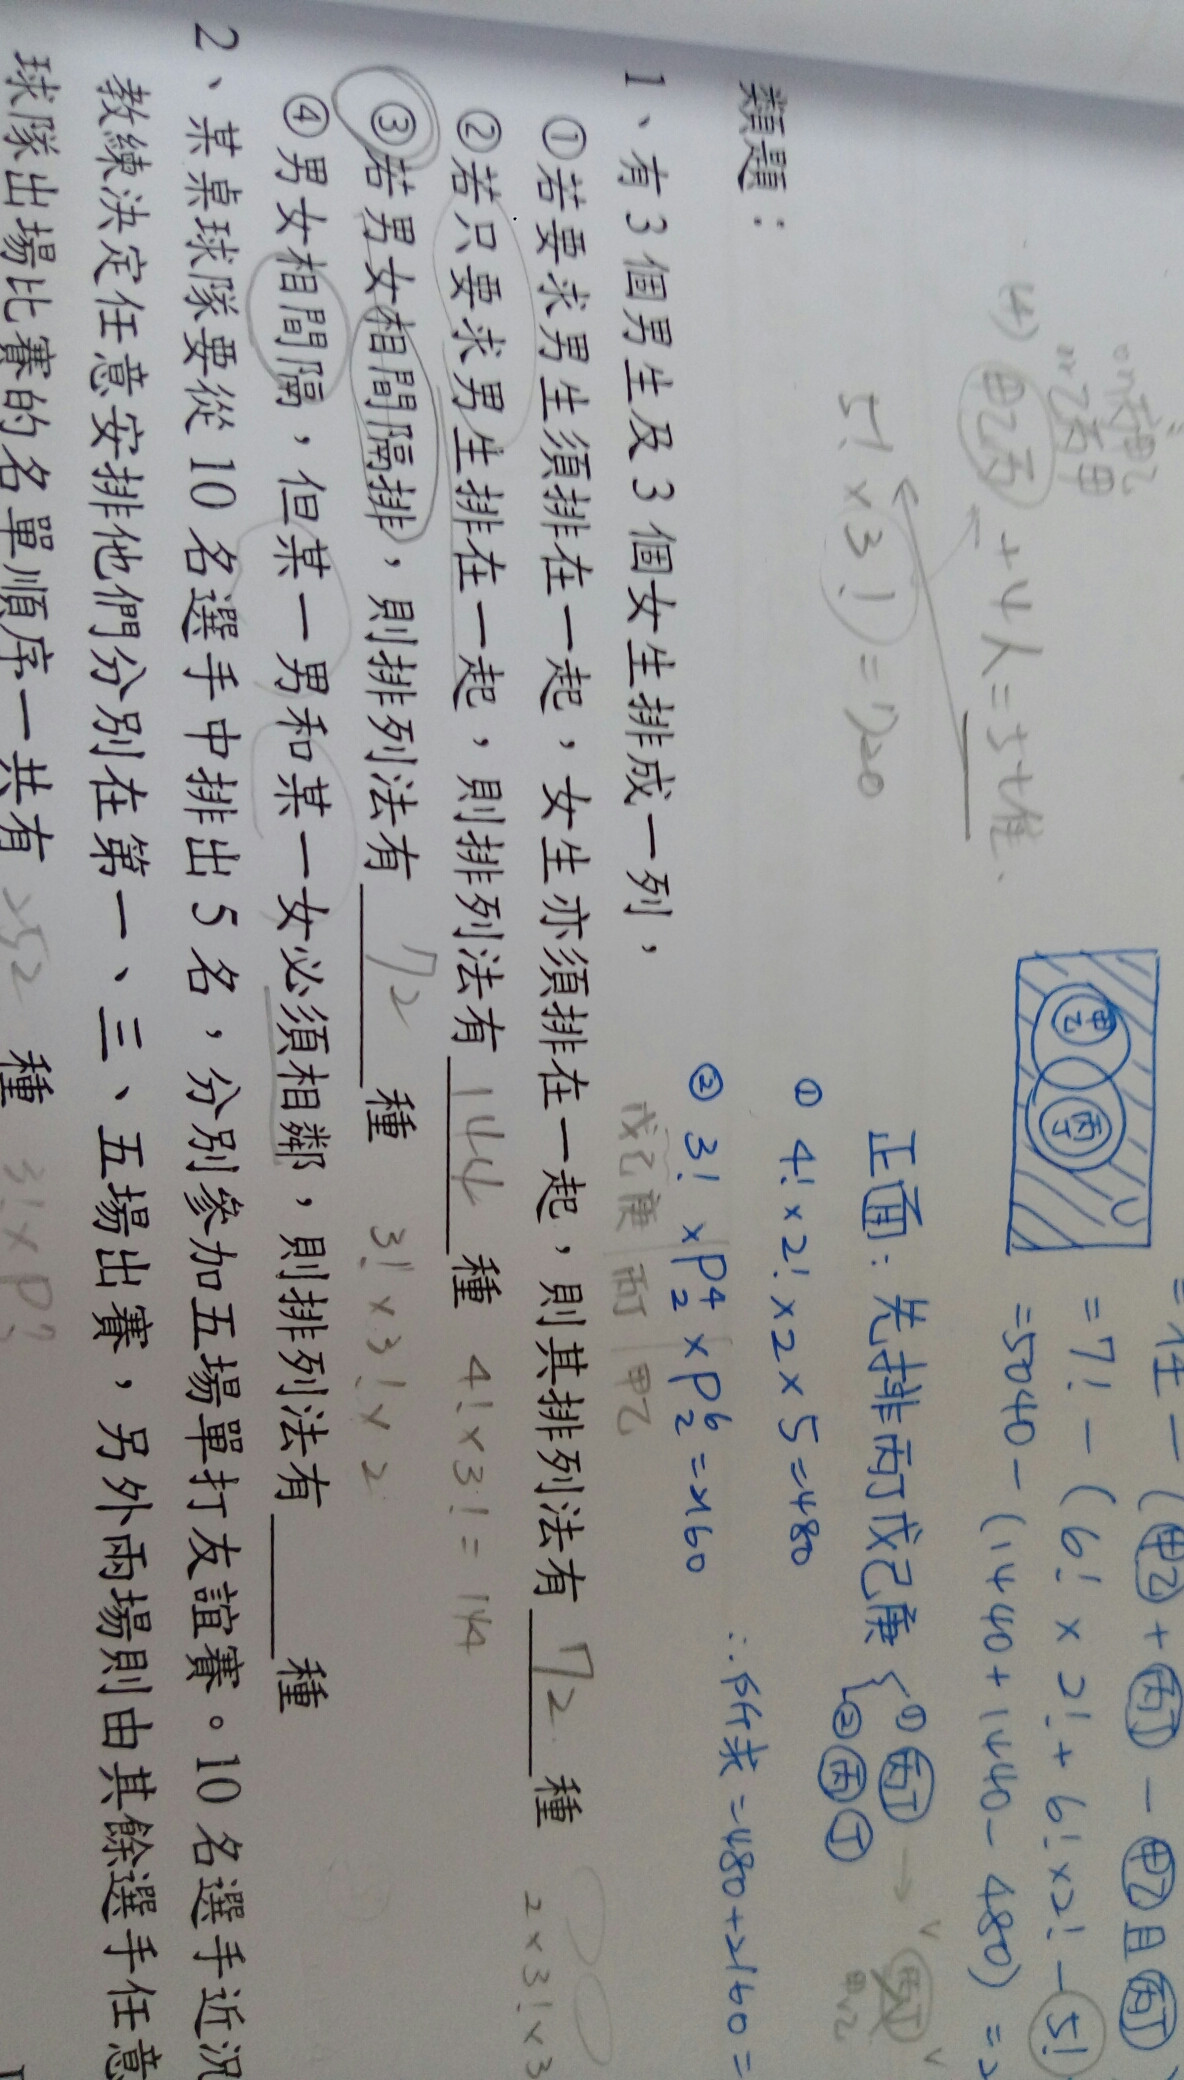 (4) 甲乙丙 + 4人 = 5+任
or 乙丙甲
or 丙甲乙
5! × 3! = 720
= 任 - (甲乙 + 丙丁 - 甲乙且丙丁)
= 7! - (6! × 2! + 6! × 2! - 5!
= 5040 - (1440 + 1440 - 480) =
甲乙 丙丁 U
正面：先排丙丁戊己庚 { ① 丙丁
② 丙 丁
① 4! × 2! × 2 × 5 = 480
② 3! × P⁴₂ × P⁶₂ = 2160
∴所求 = 480 + 2160 =
戊己庚 丙丁 甲乙
類題：
1、有 3 個男生及 3 個女生排成一列，
①若要求男生須排在一起，女生亦須排在一起，則其排列法有 72 種 2 × 3! × 3
②若只要求男生排在一起，則排列法有 144 種 4! × 3! = 144
③若男女相間隔排，則排列法有 72 種 3! × 3! × 2
④男女相間隔，但某一男和某一女必須相鄰，則排列法有 種
2、某桌球隊要從 10 名選手中排出 5 名，分別參加五場單打友誼賽。10 名選手近況
教練決定任意安排他們分別在第一、三、五場出賽，另外兩場則由其餘選手任意
球隊出場比賽的名單順序一共有 252 種 3! × P